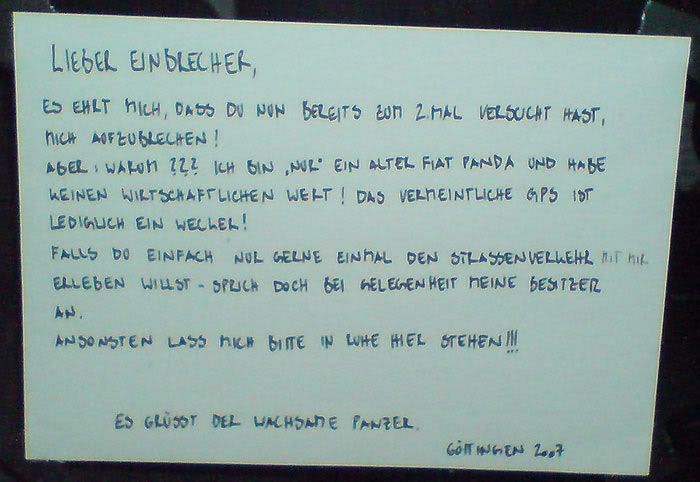 LIEBER EINBRECHER,
ES EHRT MICH, DASS DU NUN BEREITS ZUM 2.MAL VERSUCHT HAST,
MICH AUFZUBRECHEN!
ABER: WARUM ??? ICH BIN „NUR" EIN ALTER FIAT PANDA UND HABE
KEINEN WIRTSCHAFTLICHEN WERT! DAS VERMEINTLICHE GPS IST
LEDIGLICH EIN WECKER!
FALLS DU EINFACH NUR GERNE EINMAL DEN STRASSENVERKEHR MIT MIR
ERLEBEN WILLST - SPRICH DOCH BEI GELEGENHEIT MEINE BESITZER
AN.
ANSONSTEN LASS MICH BITTE IN RUHE HIER STEHEN!!!
ES GRÜSST DER WACHSAME PANZER.
GÖTTINGEN 2007